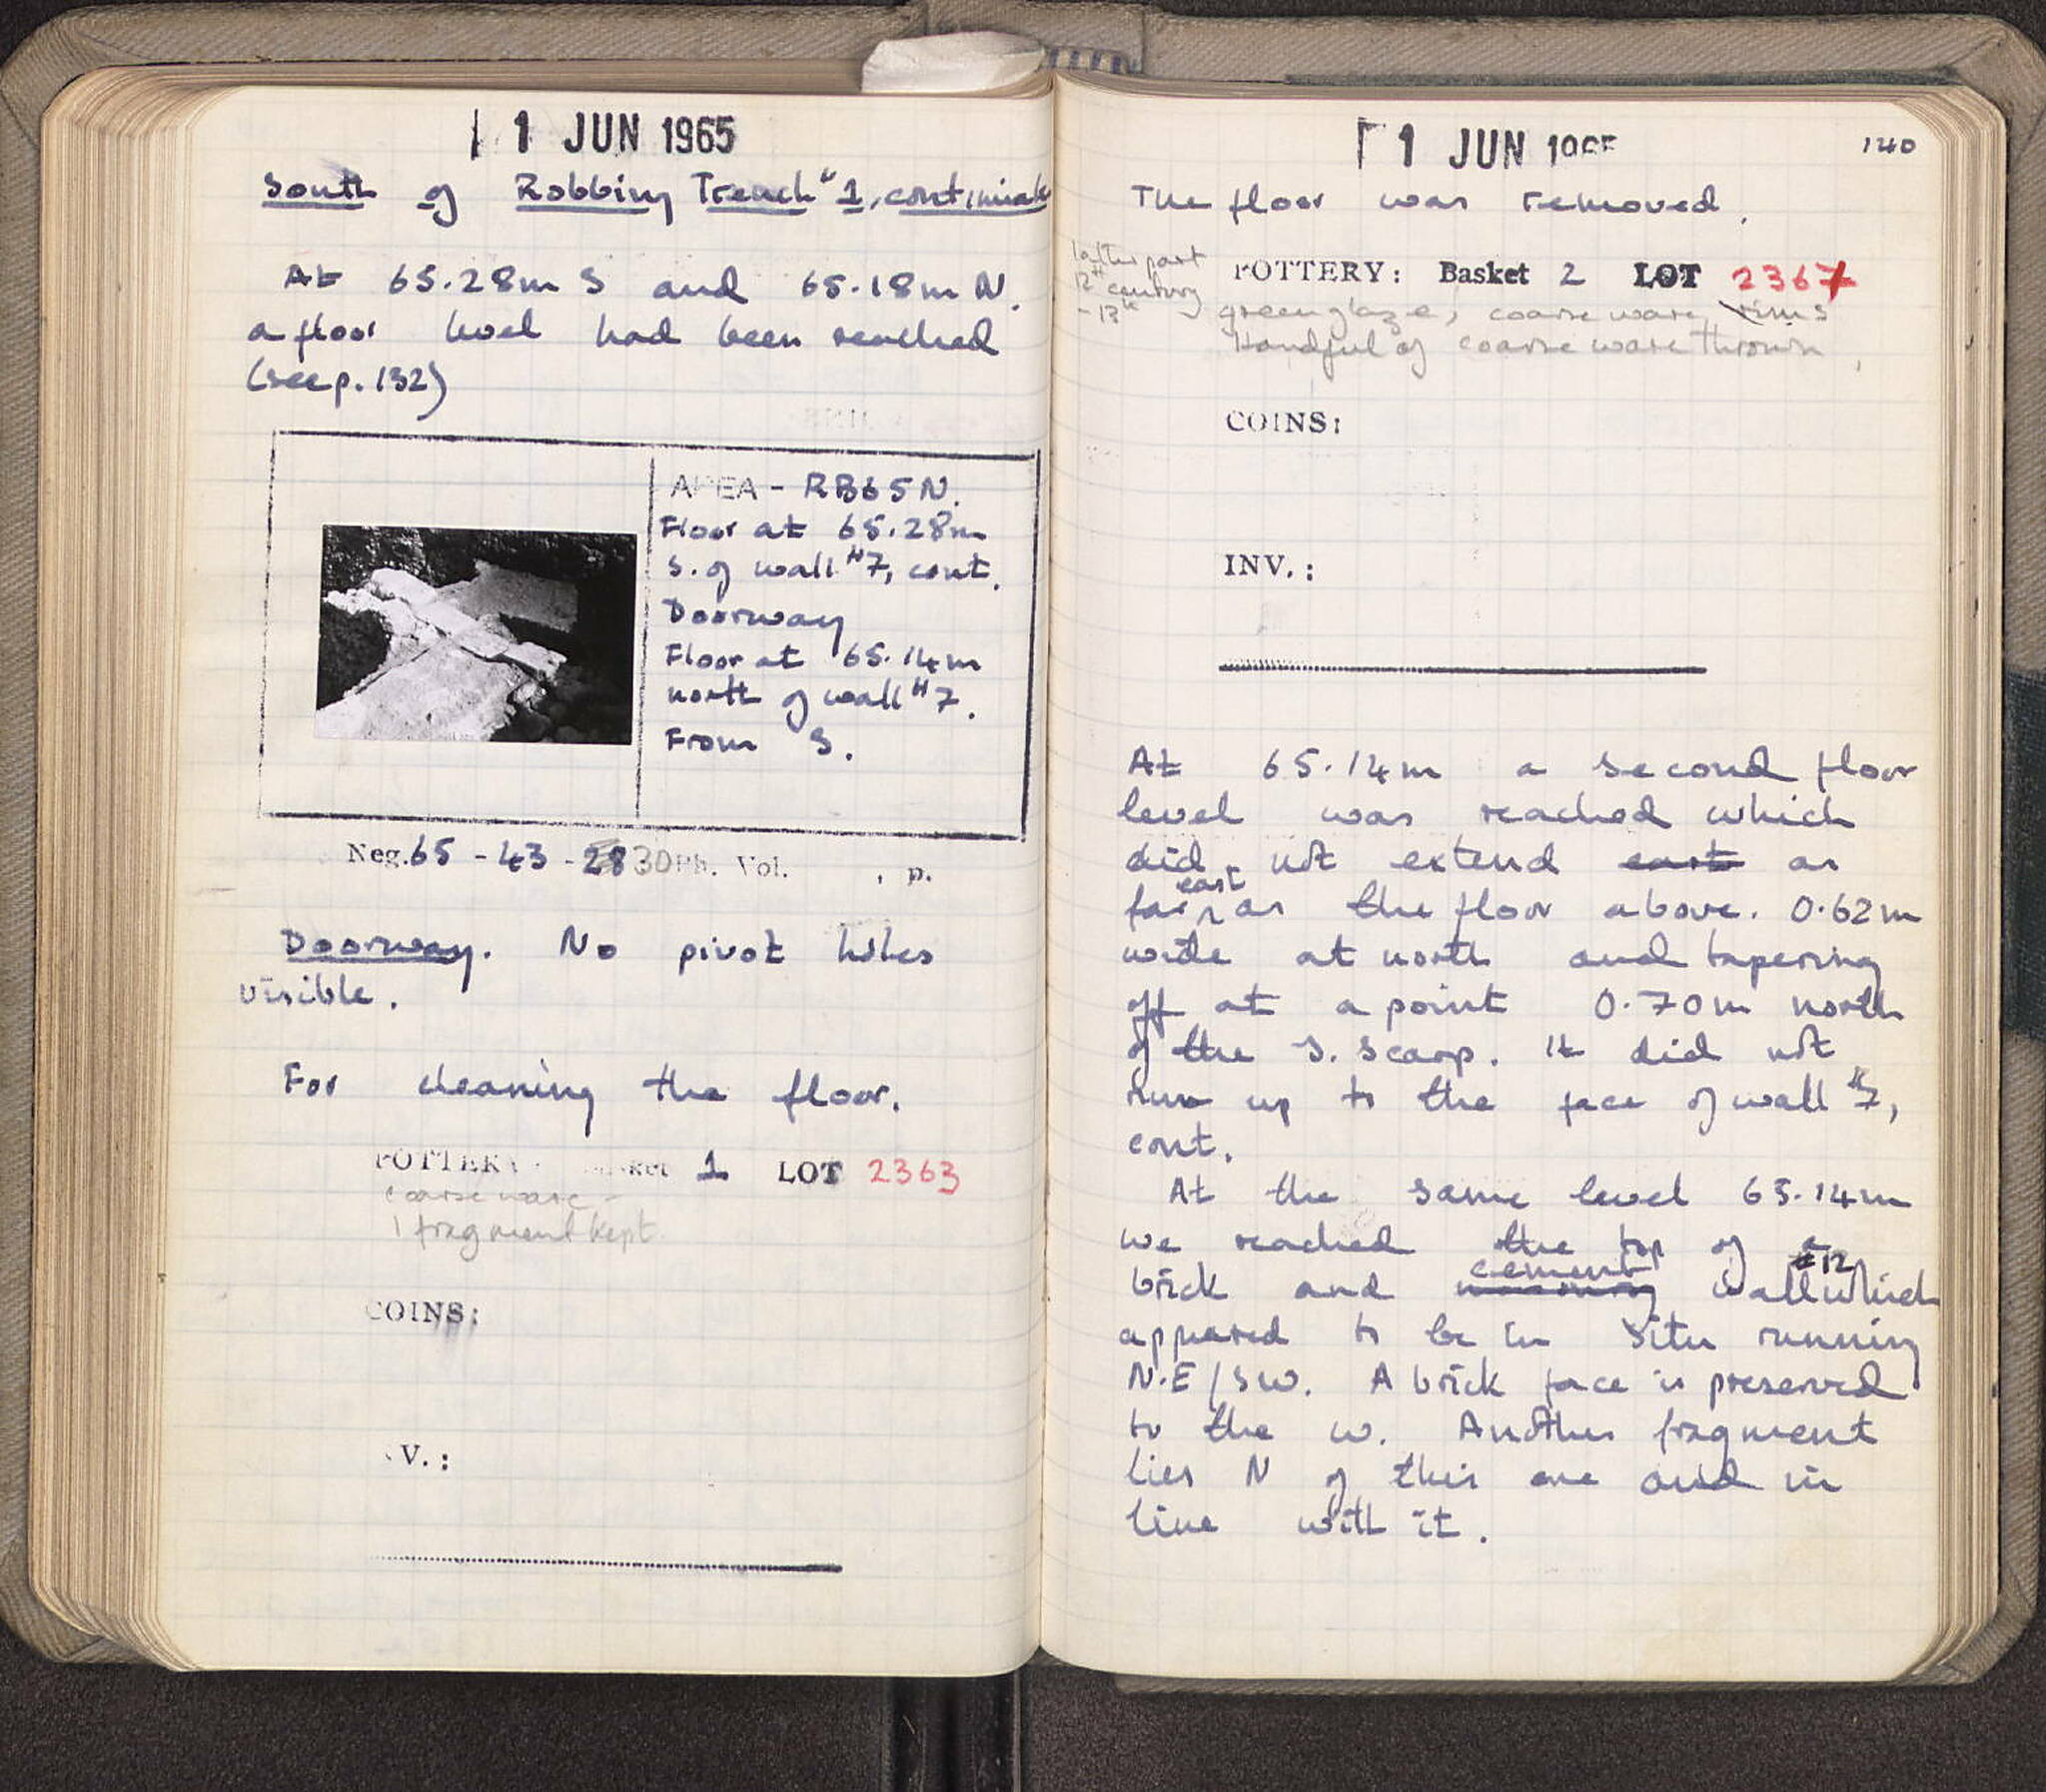 1 JUN 1965
South of Robbing Trench #1, continued
At 65.28m S and 65.18m N.
a floor level had been reached
(see p. 132)
AREA - RB65N.
Floor at 65.28m
S. of wall #7, cont.
Doorway
Floor at 65.14m
north of wall #7.
From S.
Neg. 65 - 43 - 30 Ph. Vol. , p.
Doorway. No pivot holes
visible.
For cleaning the floor.
POTTERY: Basket 1 LOT 2363
coarse ware -
1 fragment kept
COINS:
V.:
1 JUN 1965
140
The floor was removed.
latter part
12th century
- 13th
POTTERY: Basket 2 LOT 2367
green glaze, coarse ware, rims
Handful of coarse ware thrown
COINS:
INV.:
At 65.14m a second floor
level was reached which
did not extend east as
far east as the floor above. 0.62m
wide at north and tapering
off at a point 0.70m north
of the S. scarp. It did not
run up to the face of wall #7,
cont.
At the same level 65.14m
we reached the top of a
brick and cement wall which
appeared to be in situ running
N.E/SW. A brick face is preserved
to the W. Another fragment
lies N of this one and in
line with it.